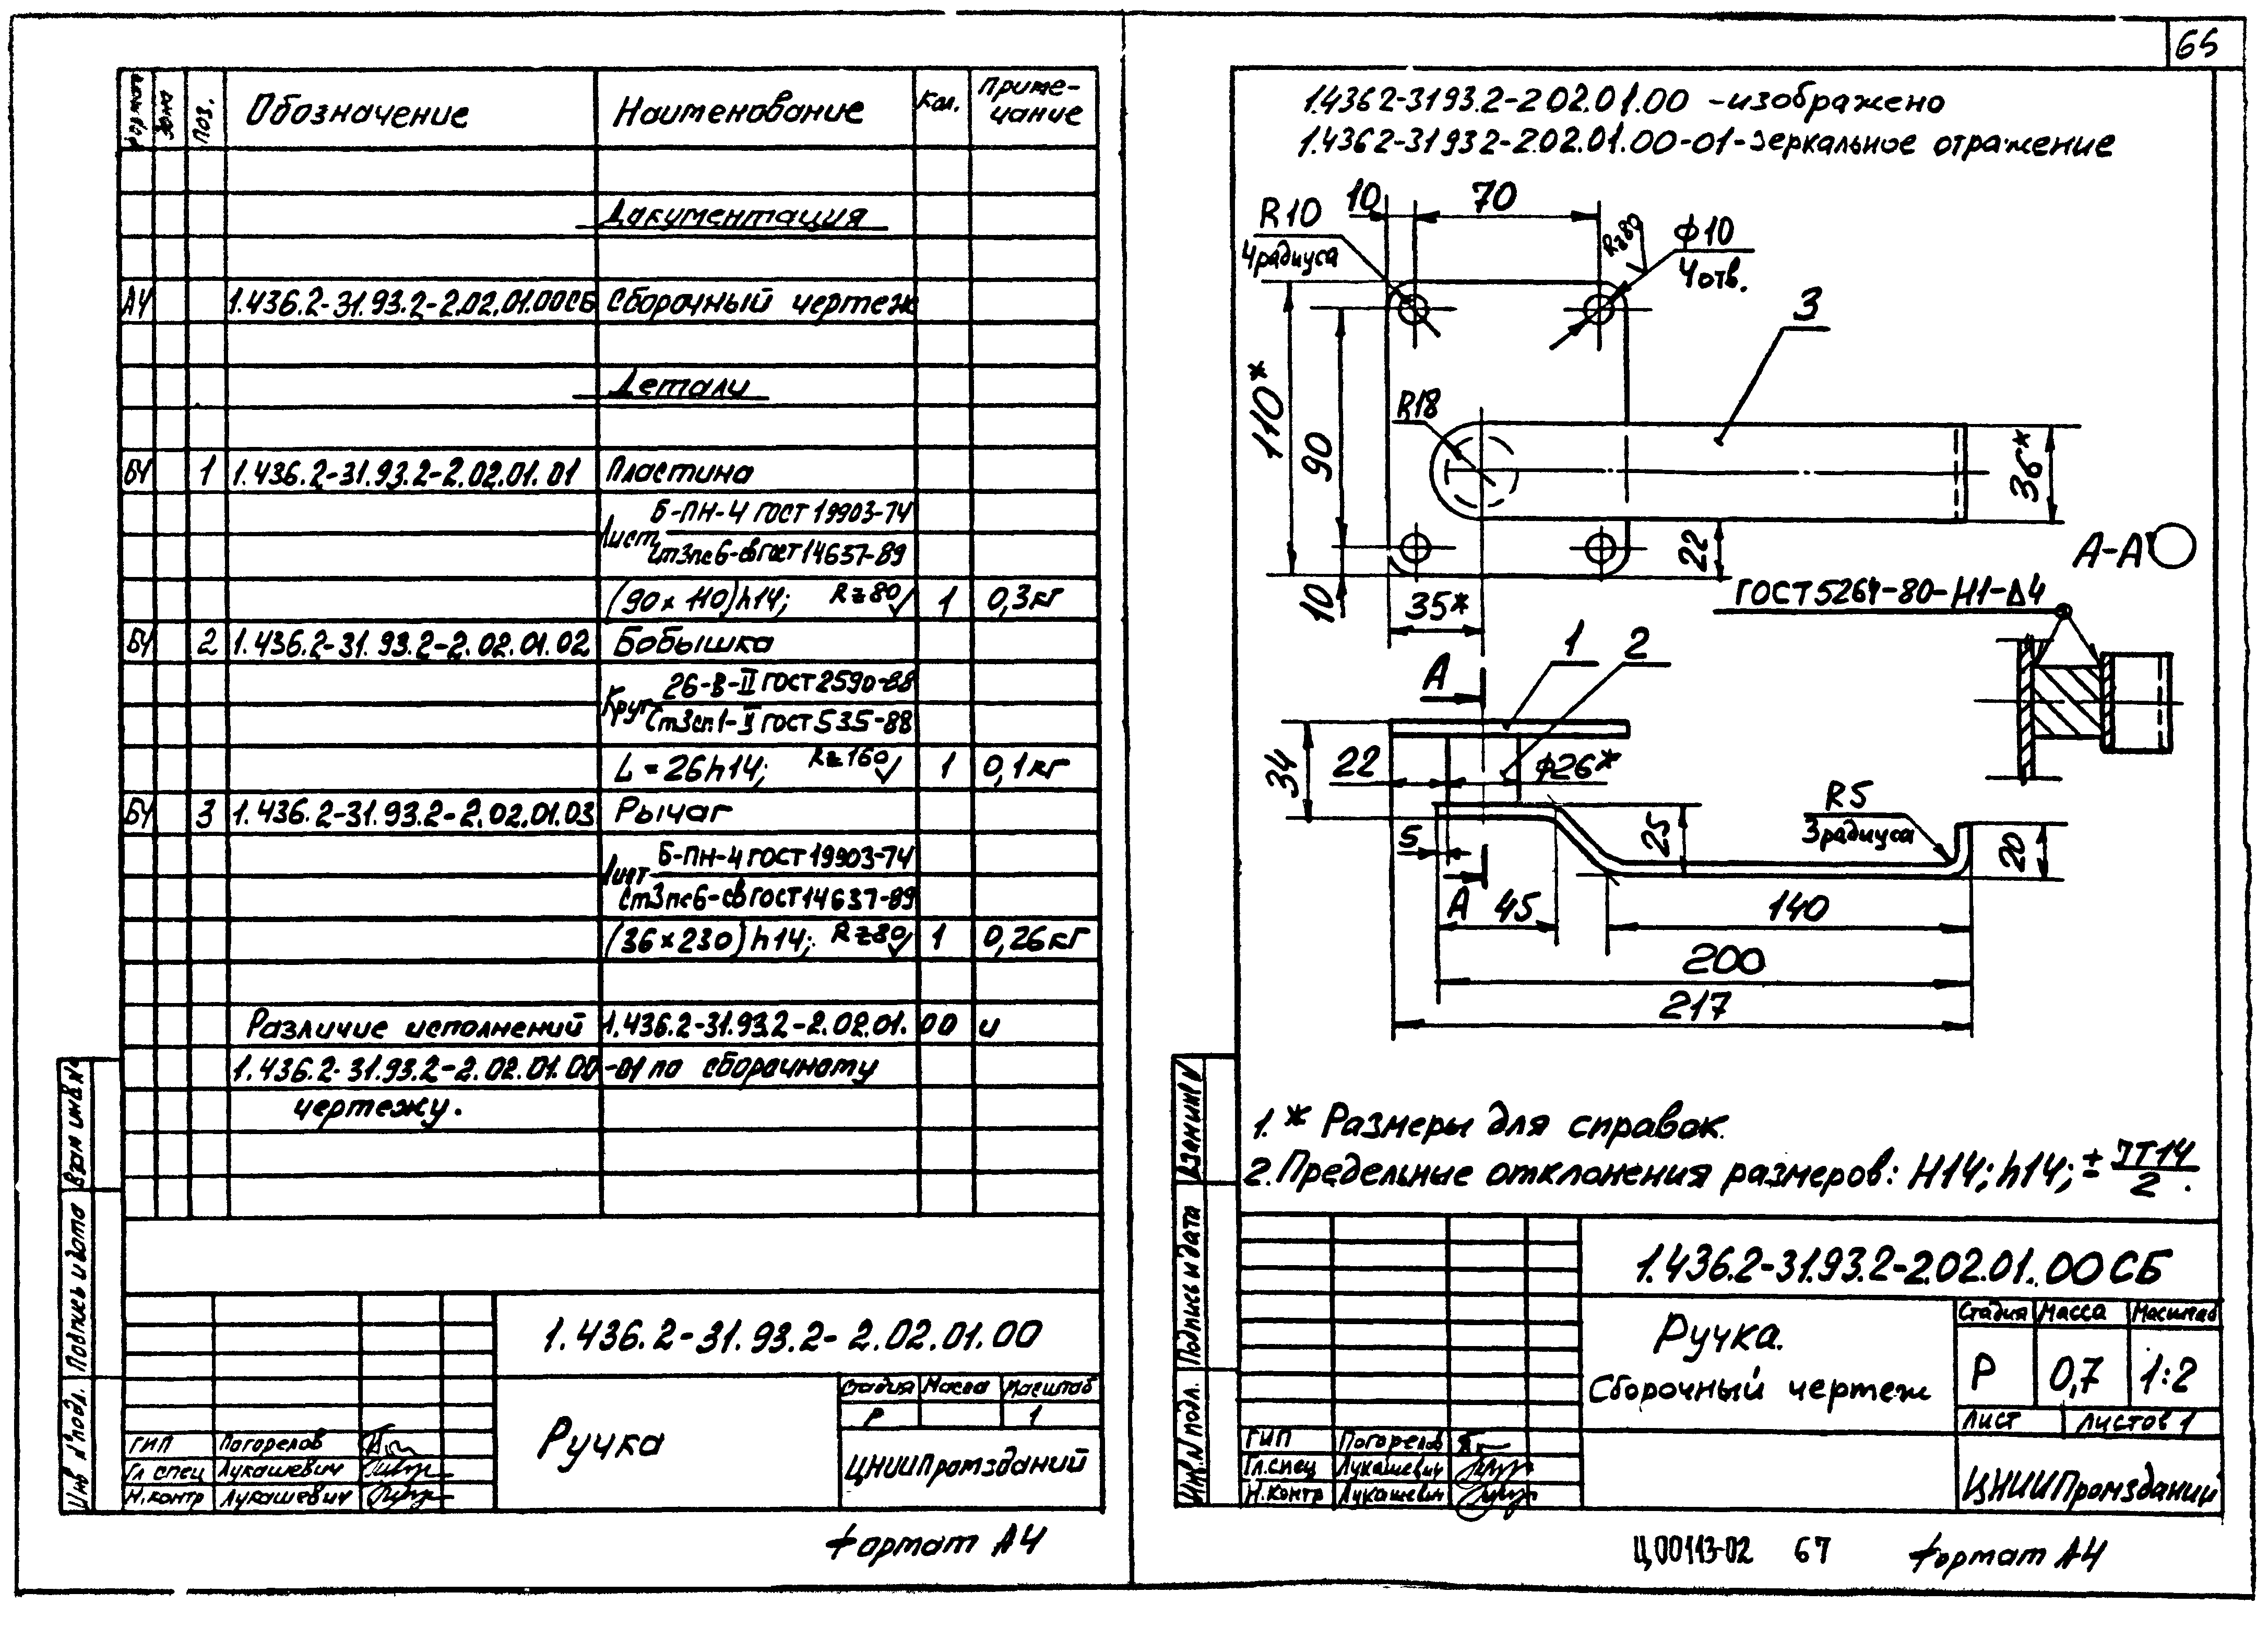 Формат Зона Поз. Обозначение Наименование Кол. Приме-
чание
Документация
А4 1.436.2-31.93.2-2.02.01.00СБ Сборочный чертеж
Детали
БЧ 1 1.436.2-31.93.2-2.02.01.01 Пластина
Б-ПН-4 ГОСТ 19903-74
Лист
Ст3пс6-св ГОСТ 14637-89
(90×110)h14; Rz80 1 0,3кг
БЧ 2 1.436.2-31.93.2-2.02.01.02 Бобышка
26-В-II ГОСТ 2590-88
Круг
Ст3сп1-II ГОСТ 535-88
L=26h14; Rz160 1 0,1кг
БЧ 3 1.436.2-31.93.2-2.02.01.03 Рычаг
Б-ПН-4 ГОСТ 19903-74
Лист
Ст3пс6-св ГОСТ 14637-89
(36×230)h14; Rz80 1 0,26кг
Различие исполнений 1.436.2-31.93.2-2.02.01.00 и
1.436.2-31.93.2-2.02.01.00-01 по сборочному
чертежу.
Взам инв №
Подпись и дата
Инв № подл.
1.436.2-31.93.2-2.02.01.00
Ручка
Стадия Масса Масштаб
Р 1
ЦНИИПромзданий
ГИП Погорелов
Гл спец Лукашевич
Н.контр Лукашевич
Формат А4
65
1.436 2-31 93.2-2 02.01.00 -изображено
1.436 2-31 93 2-2.02.01.00-01-зеркальное отражение
10 70
R10
4 радиуса
Rz80
φ10
4 отв.
3
110*
90
R18
36*
22
10
35*
А-А
ГОСТ 5264-80-Н1-Δ4
1 2
А
34
22 φ26*
R5
3 радиуса
25
20
5
А 45 140
200
217
1. * Размеры для справок.
2. Предельные отклонения размеров: H14; h14; ± IT14/2.
Взам инв №
Подпись и дата
Инв.№ подл.
1.436.2-31.93.2-2.02.01.00СБ
Ручка.
Сборочный чертеж
Стадия Масса Масштаб
Р 0,7 1:2
Лист Листов 1
ЦНИИПромзданий
ГИП Погорелов
Гл.спец Лукашевич
Н.контр Лукашевич
Ц00113-02 67 Формат А4